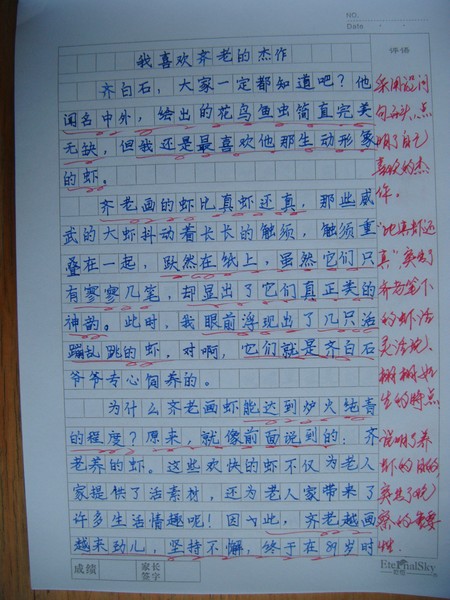 NO.
Date
评语
我喜欢齐老的杰作
齐白石，大家一定都知道吧？他
闻名中外，绘出的花鸟鱼虫简直完美
无缺，但我还是最喜欢他那生动形象
的虾。
齐老画的虾比真虾还真，那些威
武的大虾抖动着长长的触须，触须重
叠在一起，跃然在纸上，虽然它们只
有寥寥几笔，却显出了它们真正美的
神韵。此时，我眼前浮现出了几只活
蹦乱跳的虾，对啊，它们就是齐白石
爷爷专心饲养的。
为什么齐老画虾能达到炉火纯青
的程度？原来，就像前面说到的：齐
老养的虾。这些欢快的虾不仅为老人
家提供了活素材，还为老人家带来了
许多生活情趣呢！因此，齐老越画
越来劲儿，坚持不懈，终于在81岁时
采用设问
句开头，点
明了自己
喜欢的杰
作。
"比真虾还
真"，突出了
齐老笔下
的虾活
灵活现、
栩栩如
生的特点
说明了养
虾的目的，
突出了观
察的重要
性
成绩
家长
签字
EternalSky